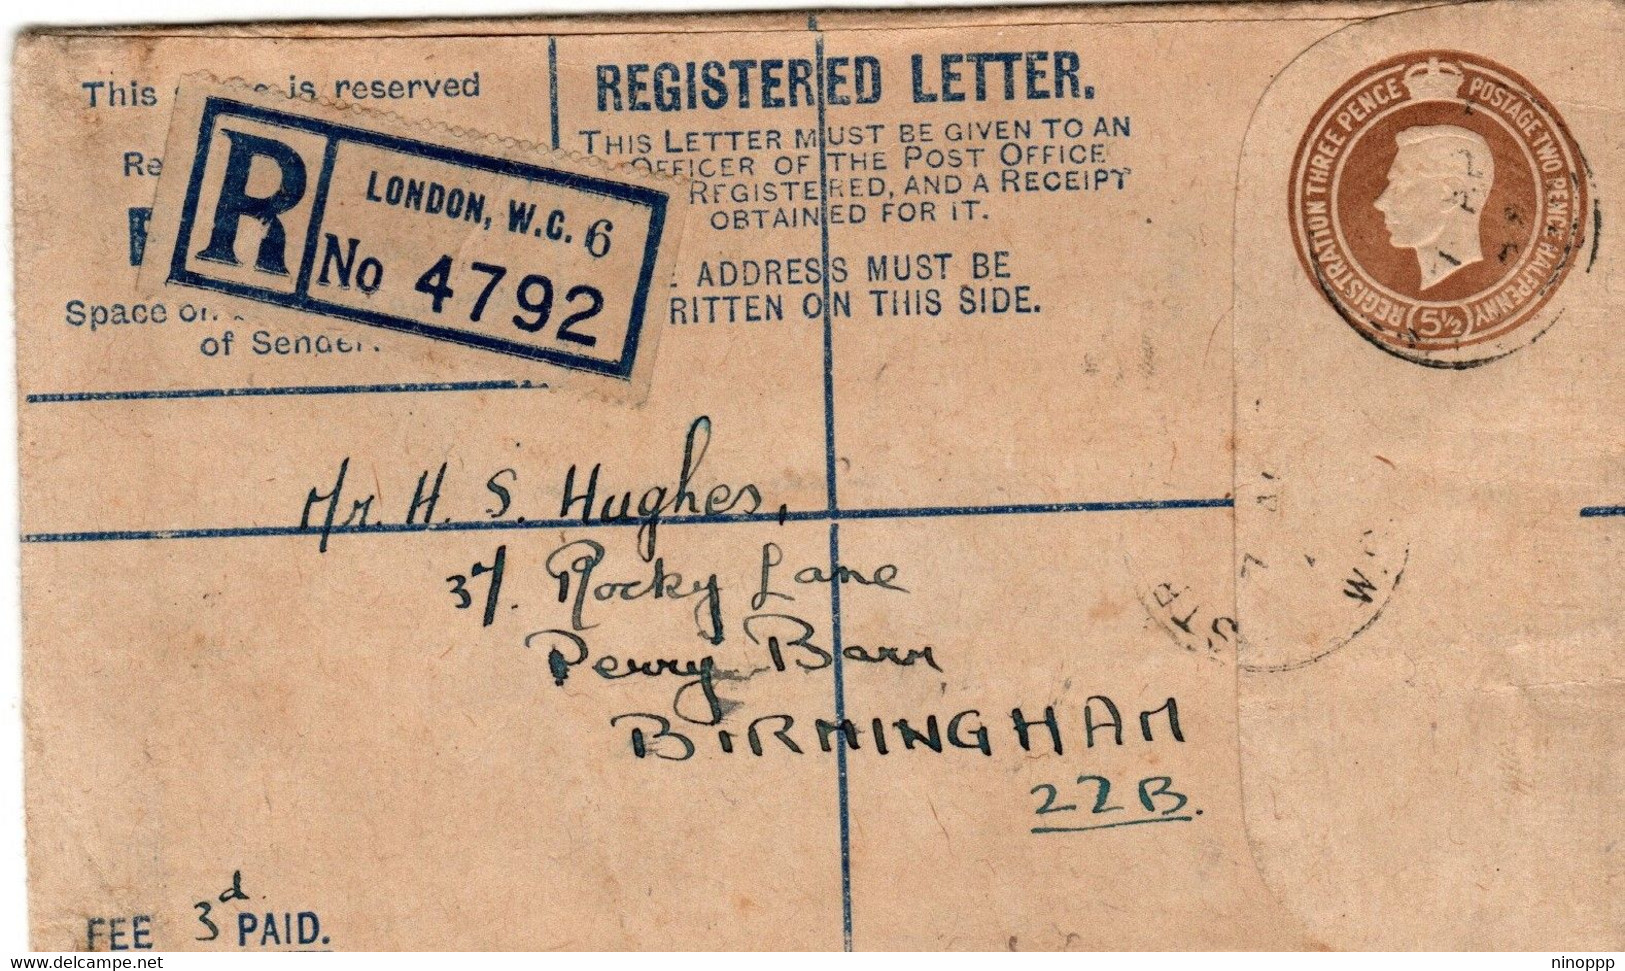 This is reserved
REGISTERED LETTER.
THIS LETTER MUST BE GIVEN TO AN
OFFICER OF THE POST OFFICE
REGISTERED, AND A RECEIPT
OBTAINED FOR IT.
ADDRESS MUST BE
RITTEN ON THIS SIDE.
Re
Space
of Sender.
R
LONDON, W.C. 6
No 4792
REGISTRATION THREE PENCE
POSTAGE TWO PENCE HALFPENNY
5½
Mr. H. S. Hughes,
37. Rocky Lane
Perry Barr
BIRMINGHAM
22B.
FEE 3d PAID.
delcampe.net
ninoppp